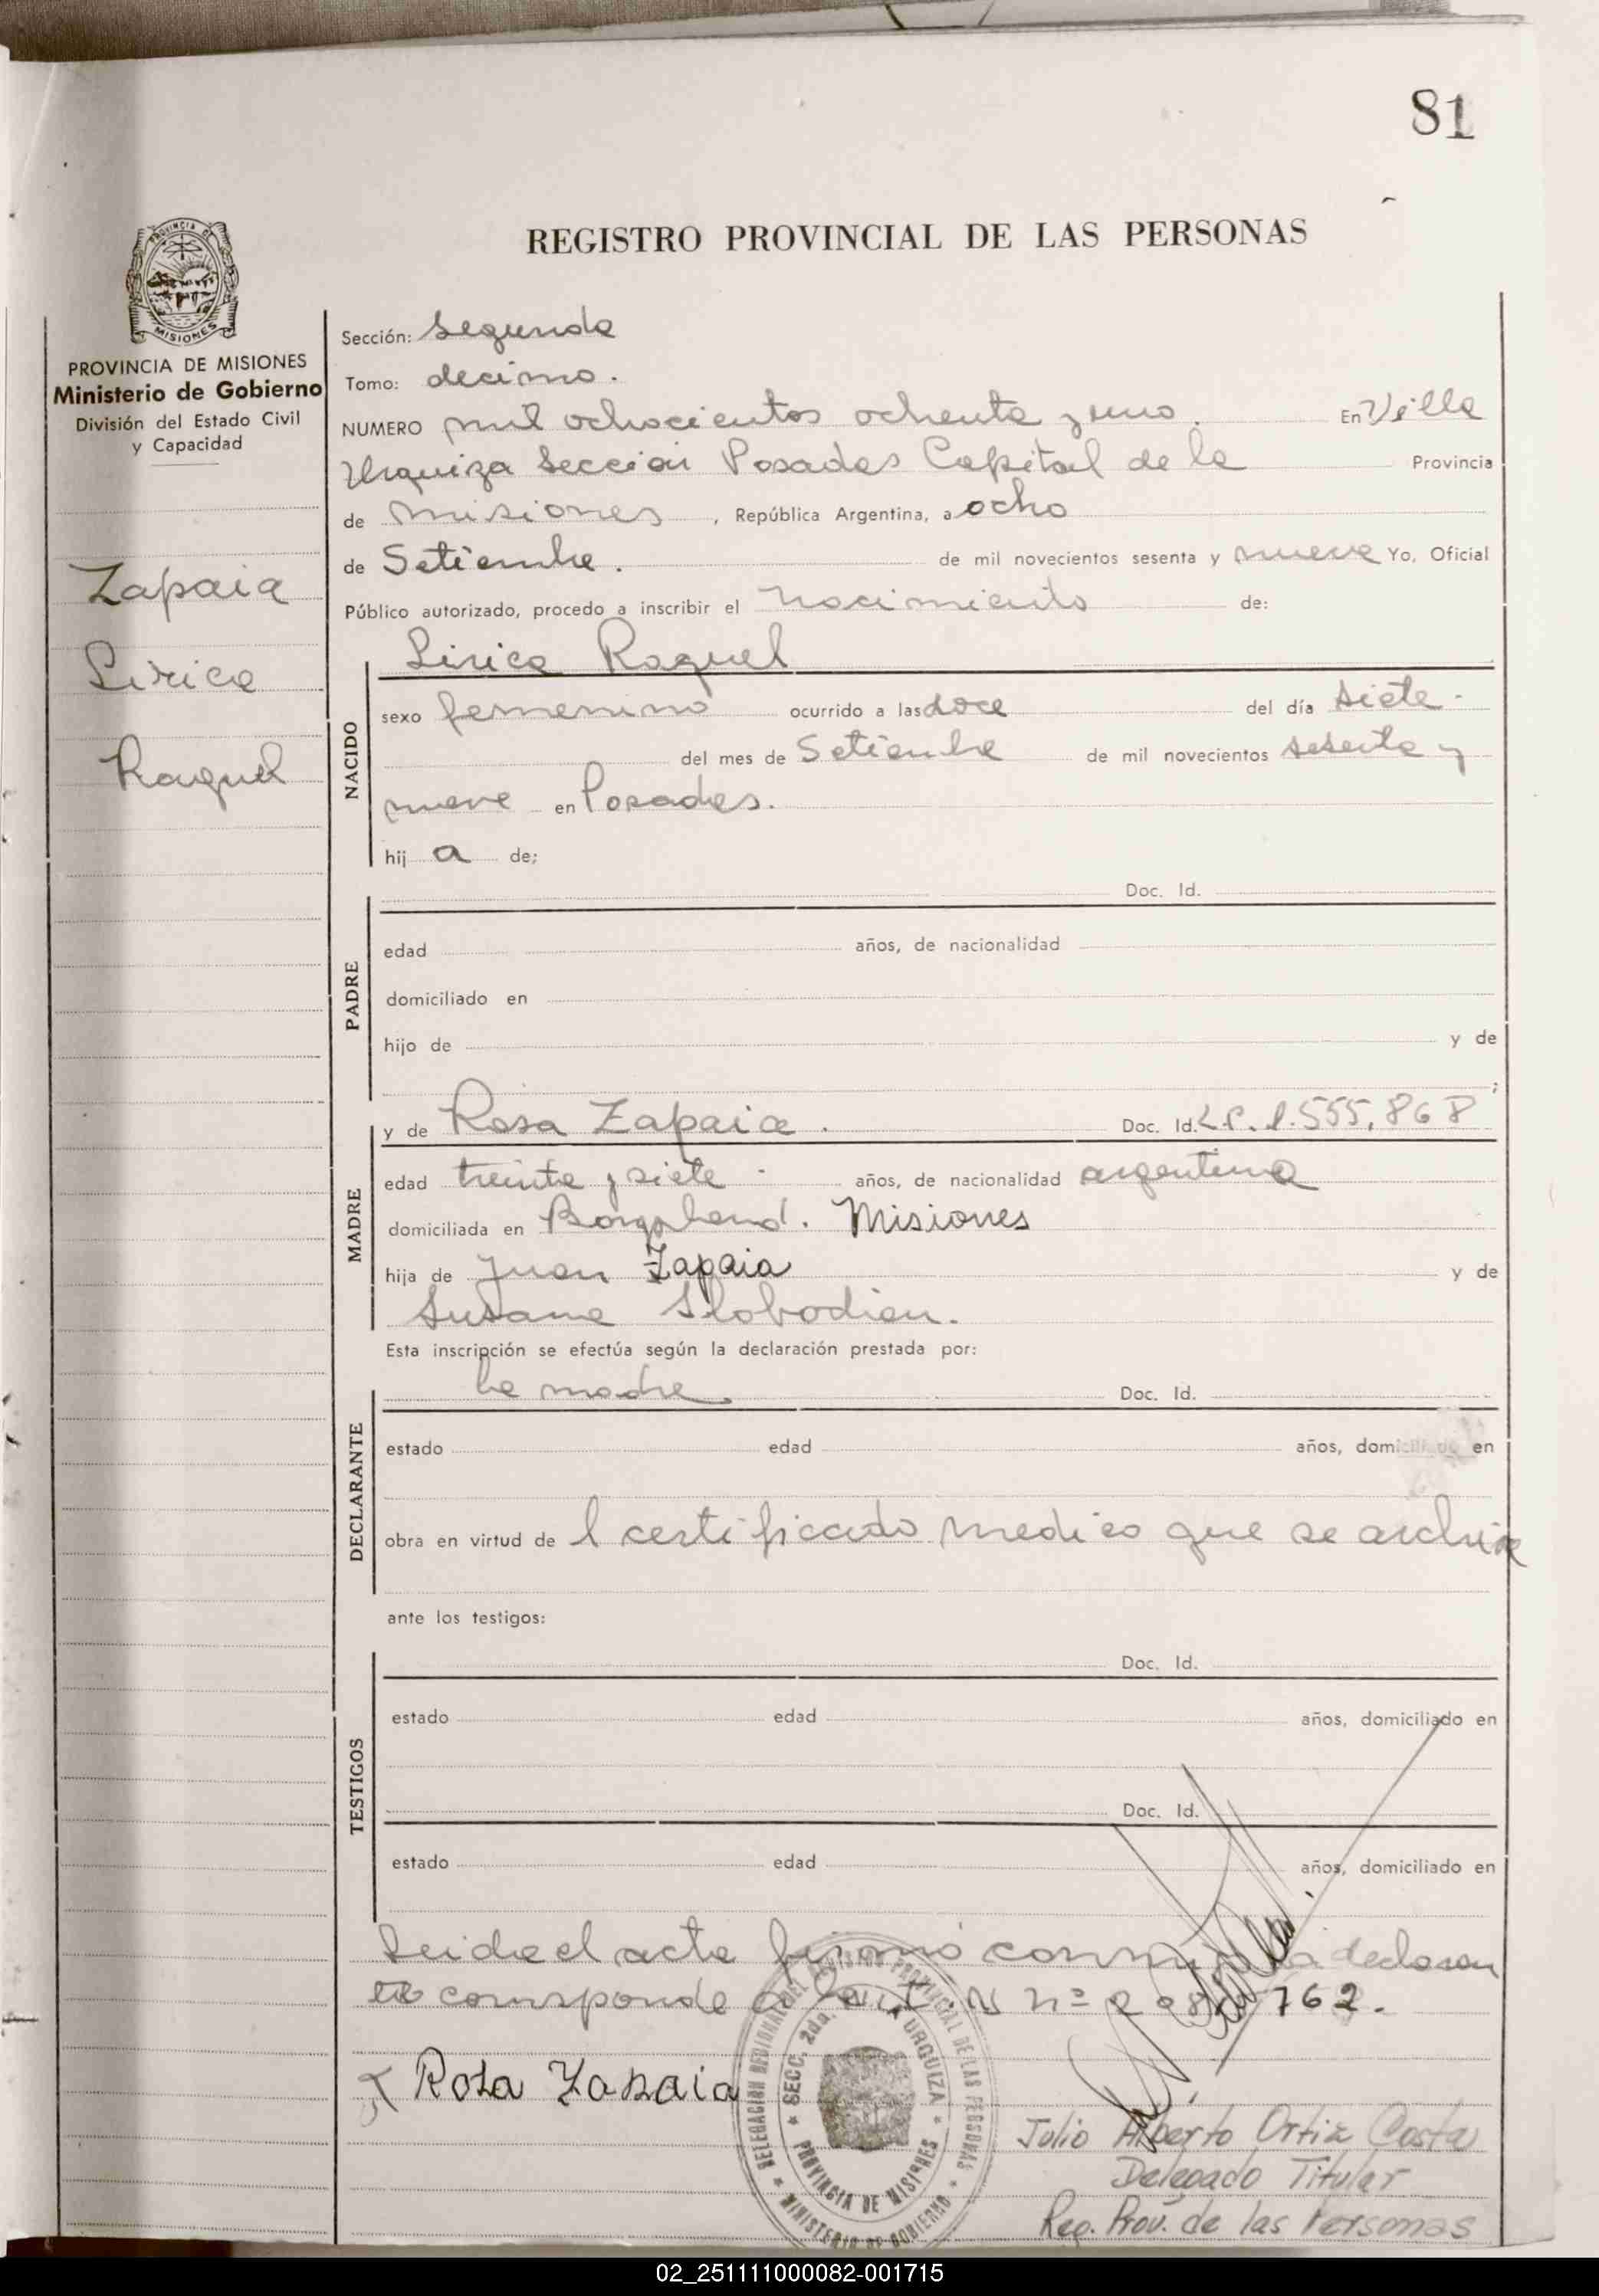 81
REGISTRO PROVINCIAL DE LAS PERSONAS
PROVINCIA DE MISIONES
PROVINCIA DE MISIONES
Ministerio de Gobierno
División del Estado Civil
y Capacidad
Zapaia
Lirica
Raquel
Sección: Segunda
Tomo: decimo.
NUMERO mil ochocientos ochenta y uno. En Villa
Urquiza Seccion Posadas Capital de la Provincia
de Misiones, República Argentina, a ocho
de Setiembre. de mil novecientos sesenta y nueve Yo, Oficial
Público autorizado, procedo a inscribir el nacimiento de:
Lirica Raquel
NACIDO
sexo femenino ocurrido a las doce del día siete
del mes de Setiembre de mil novecientos sesenta y
nueve en Posadas.
hij a de;
Doc. Id.
PADRE
edad años, de nacionalidad
domiciliado en
hijo de y de
;
MADRE
y de Rosa Zapaia. Doc. Id. L.C. 1.555.868
edad treinta y siete años, de nacionalidad argentina
domiciliada en Bompland. Misiones
hija de Juan Zapaia y de
Susana Slobodian.
Esta inscripción se efectúa según la declaración prestada por:
DECLARANTE
la madre. Doc. Id.
estado edad años, domiciliado en
obra en virtud de l certificado medico que se archiva
ante los testigos:
TESTIGOS
Doc. Id.
estado edad años, domiciliado en
Doc. Id.
estado edad años, domiciliado en
Leida el acta firmó conmigo la declaran
te corresponde 762.
Rosa Zapaia
DELEGACION REGIONAL DEL REGISTRO PROVINCIAL DE LAS PERSONAS
SECC. 2da. URQUIZA
PROVINCIA DE MISIONES
MINISTERIO DE GOBIERNO
Julio Alberto Ortiz Costa
Delegado Titular
Reg. Prov. de las Personas
02_251111000082-001715